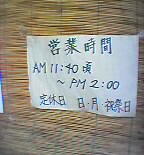 営業時間
AM 11:40頃
～PM 2:00
定休日 日・月・祝祭日